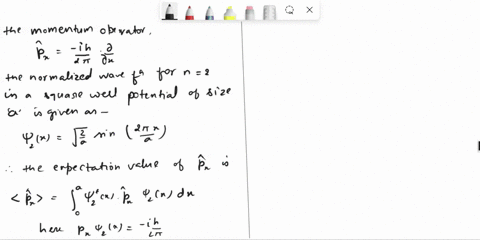 the momentum operator,
p̂ₓ = -ih/2π ∂/∂x
the normalized wave fⁿ for n=2
in a square well potential of size
'a' is given as—
Ψ₂(x) = √(2/a) sin (2πx/a)
∴ the expectation value of p̂ₓ is
<p̂ₓ> = ∫₀ᵃ Ψ₂*(x) · p̂ₓ Ψ₂(x) dx
here pₓ Ψ₂(x) = -ih/2π